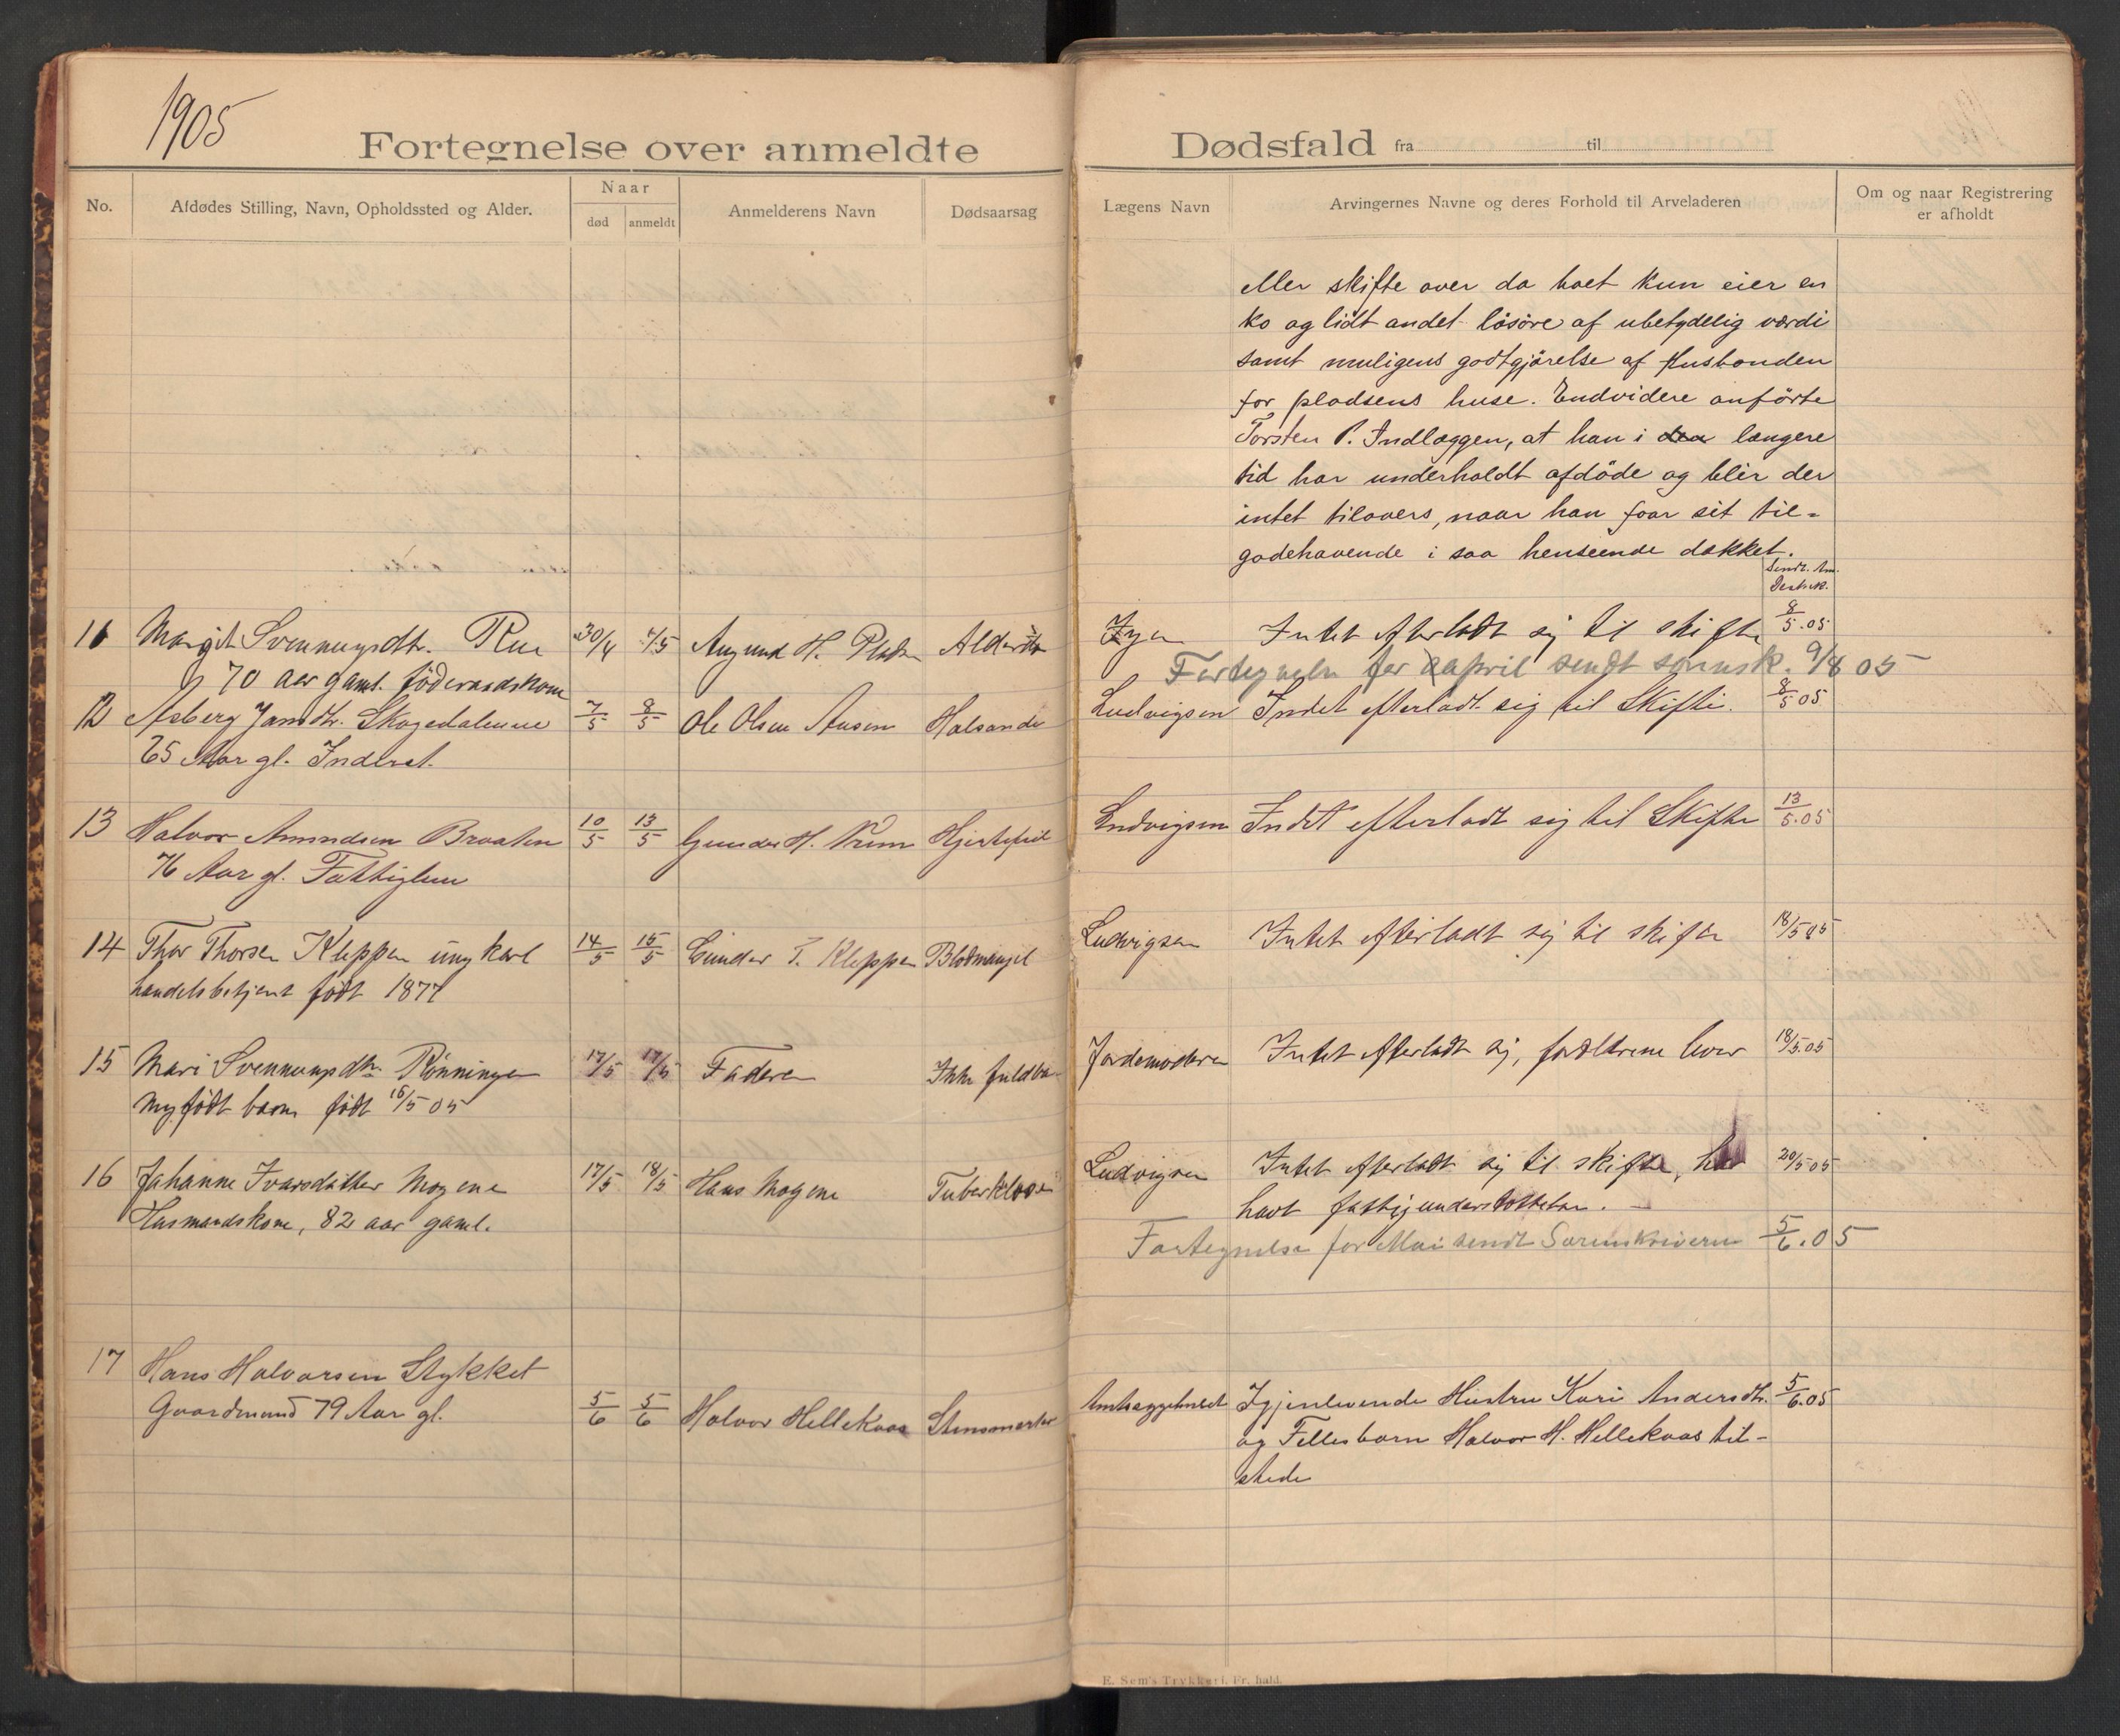 1905
Fortegnelse over anmeldte
No.
Afdødes Stilling, Navn, Opholdssted og Alder.
Naar
død
anmeldt
Anmelderens Navn
Dødsaarsag
11 Margit Svennungsdtr. Rue 30/4 4/5 Augund H. Alderdom
70 aar gaml. föderaadskone
12 Asberg Jamsdtr. Skogedalene 7/5 8/5 Ole Olsen Aasen Halsonde
65 Aar gl. Inderst.
13 Halvor Amundsen Braaten 10/5 13/5 Gunder H. Hjertefeil
76 Aar gl. Fattiglem
14 Thor Thorsen Kleppen ungkarl 14/5 15/5 Gunder T. Kleppen Blodmangel
handelsbetjent født 1877
15 Mari Svennungsdtr. Rønningen 17/5 17/5 Faderen Ikke fuldba
Nyfødt barn født 16/5 05
16 Johanne Ivarsdatter Mogene 17/5 18/5 Hans Mogene Tuberklose
Husmandskone, 82 aar gaml.
17 Hans Halvorsen Stykket
Gaardmand 79 Aar gl. 5/6 5/6 Halvor Hellekaas Stensmerter
Dødsfald fra til
Lægens Navn
Arvingernes Navne og deres Forhold til Arveladeren
Om og naar Registrering
er afholdt
eller skifte over da boet kun eier en
ko og lidt andet løsöre af ubetydelig værdi
samt muligens godtgjörelse af Husbonden
for pladsens huse. Endvidere anförte
Torsten P. Indlæggen, at han i den længere
tid har underholdt afdöde og blir der
intet tilovers, naar han faar sit til-
godehavende i saa henseende dækket.
Sendt
Intet efterladt sig til skifte 8/5.05
Fortegnelse for april sendt sorensk. 9/8 05
Ludvigsen Indet efterladt sig til Skifte. 8/5 05
Ludvigsen Indet efterladt sig til Skifte 13/5.05
Ludvigsen Intet efterladt sig til skifte 18/5 05
Jordemoderen Intet efterladt sig, forældrene lever 18/5.05
Ludvigsen Intet efterladt sig til skifte, har 20/5 05
havt fattigunderstøttelse.
Fortegnelse for Mai sendt Sorenskriveren 5/6.05
Igjenlevende Hustru Kari Andersdtr. 5/6.05
og Fellesbarn Halvor H. Hellekaas til-
stede
E. Sem's Trykkeri, Fr. hald.